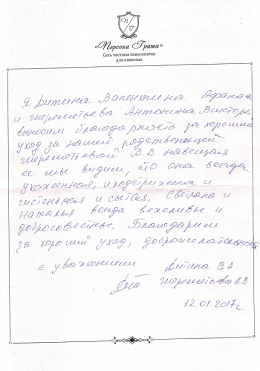 «Персона Грата»
Сеть частных пансионатов
для пожилых
Я Дитина Валентина Афанас
и Шереметьева Антонина Виктор
выносим благодарность за хороший
уход за нашей родственницей
Шереметьевой В.В навещая
а мы видим, что она всегда
ухоженная, и подстрижена и
чистенькая и сытая. Светлана и
Наталья всегда вежливы и
добросовестные. Благодарим
за хороший уход, доброжелательность
с уважением Дитина В.А
Шереметьева А.В
12.01.2017г